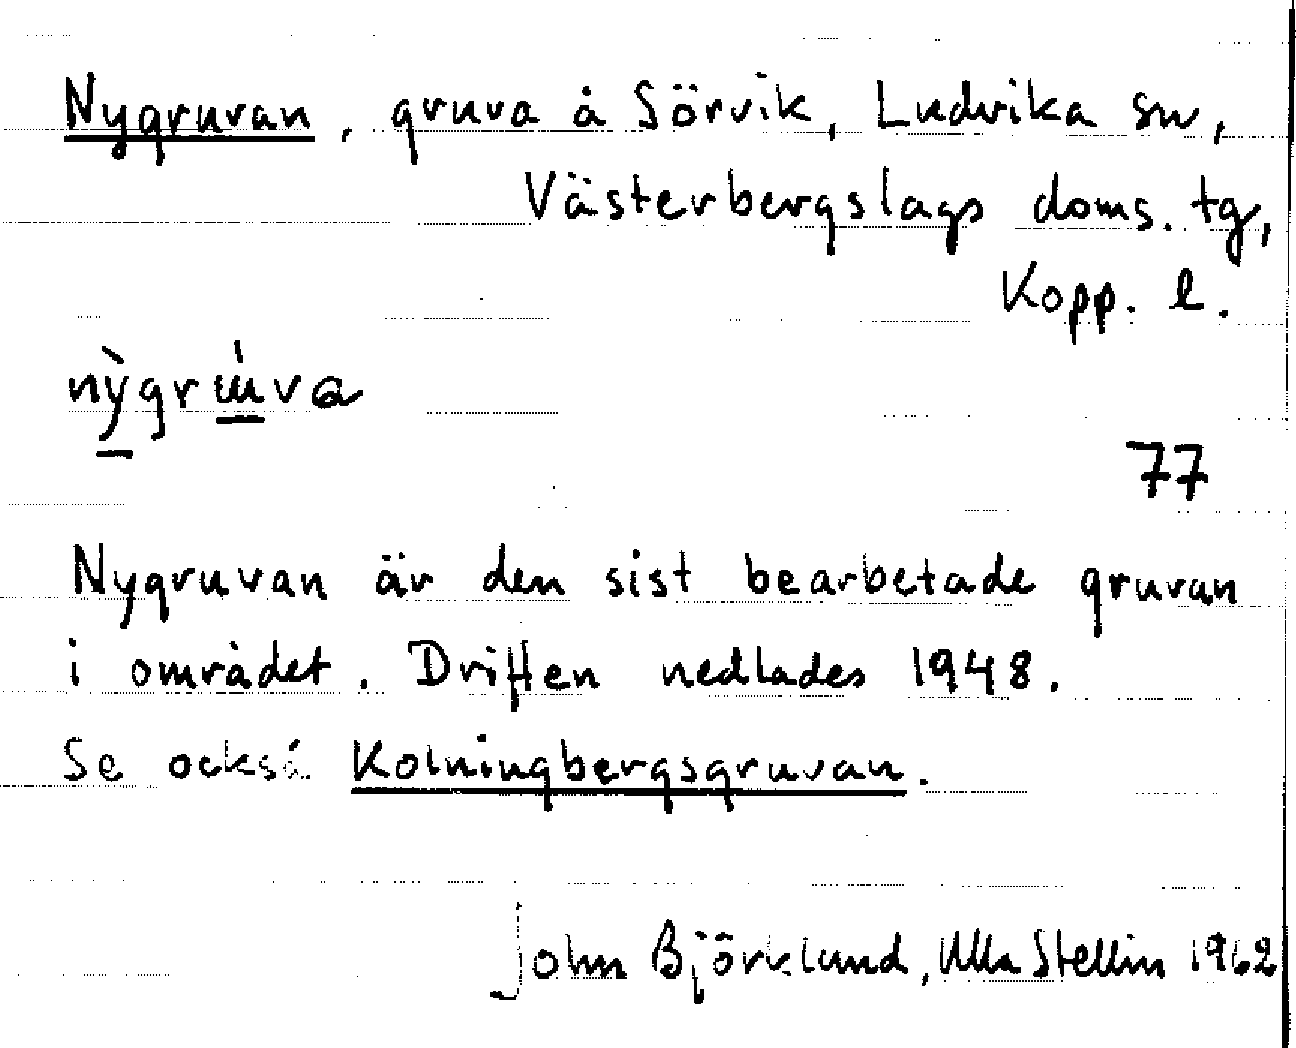 Nygruvan, gruva å Sörvik, Ludvika sn,
Västerbergslags doms. tg,
Kopp. l.
nỳgrɯ́va
77
Nygruvan är den sist bearbetade gruvan
i området. Driften nedlades 1948.
Se också Kolningbergsgruvan.
John Björklund, Ulla Stellin 1962